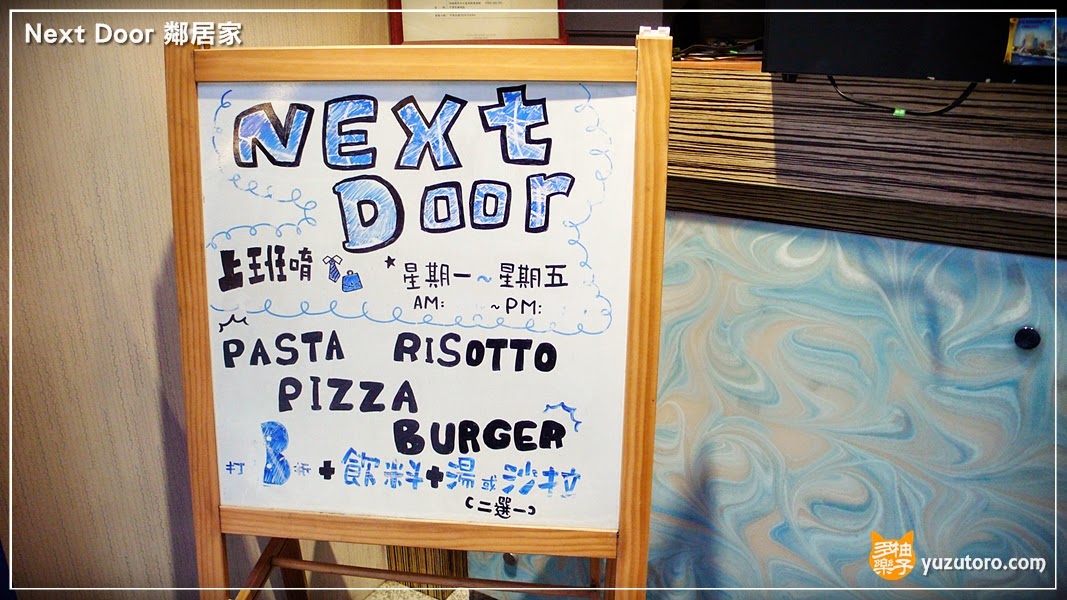 Next Door 鄰居家
NEXt
Door
上班唷 星期一~星期五
AM: ~PM:
PASTA RISOTTO
PIZZA
BURGER
打B派+飲料+湯或沙拉
(二選一)
柚子多樂 yuzutoro.com